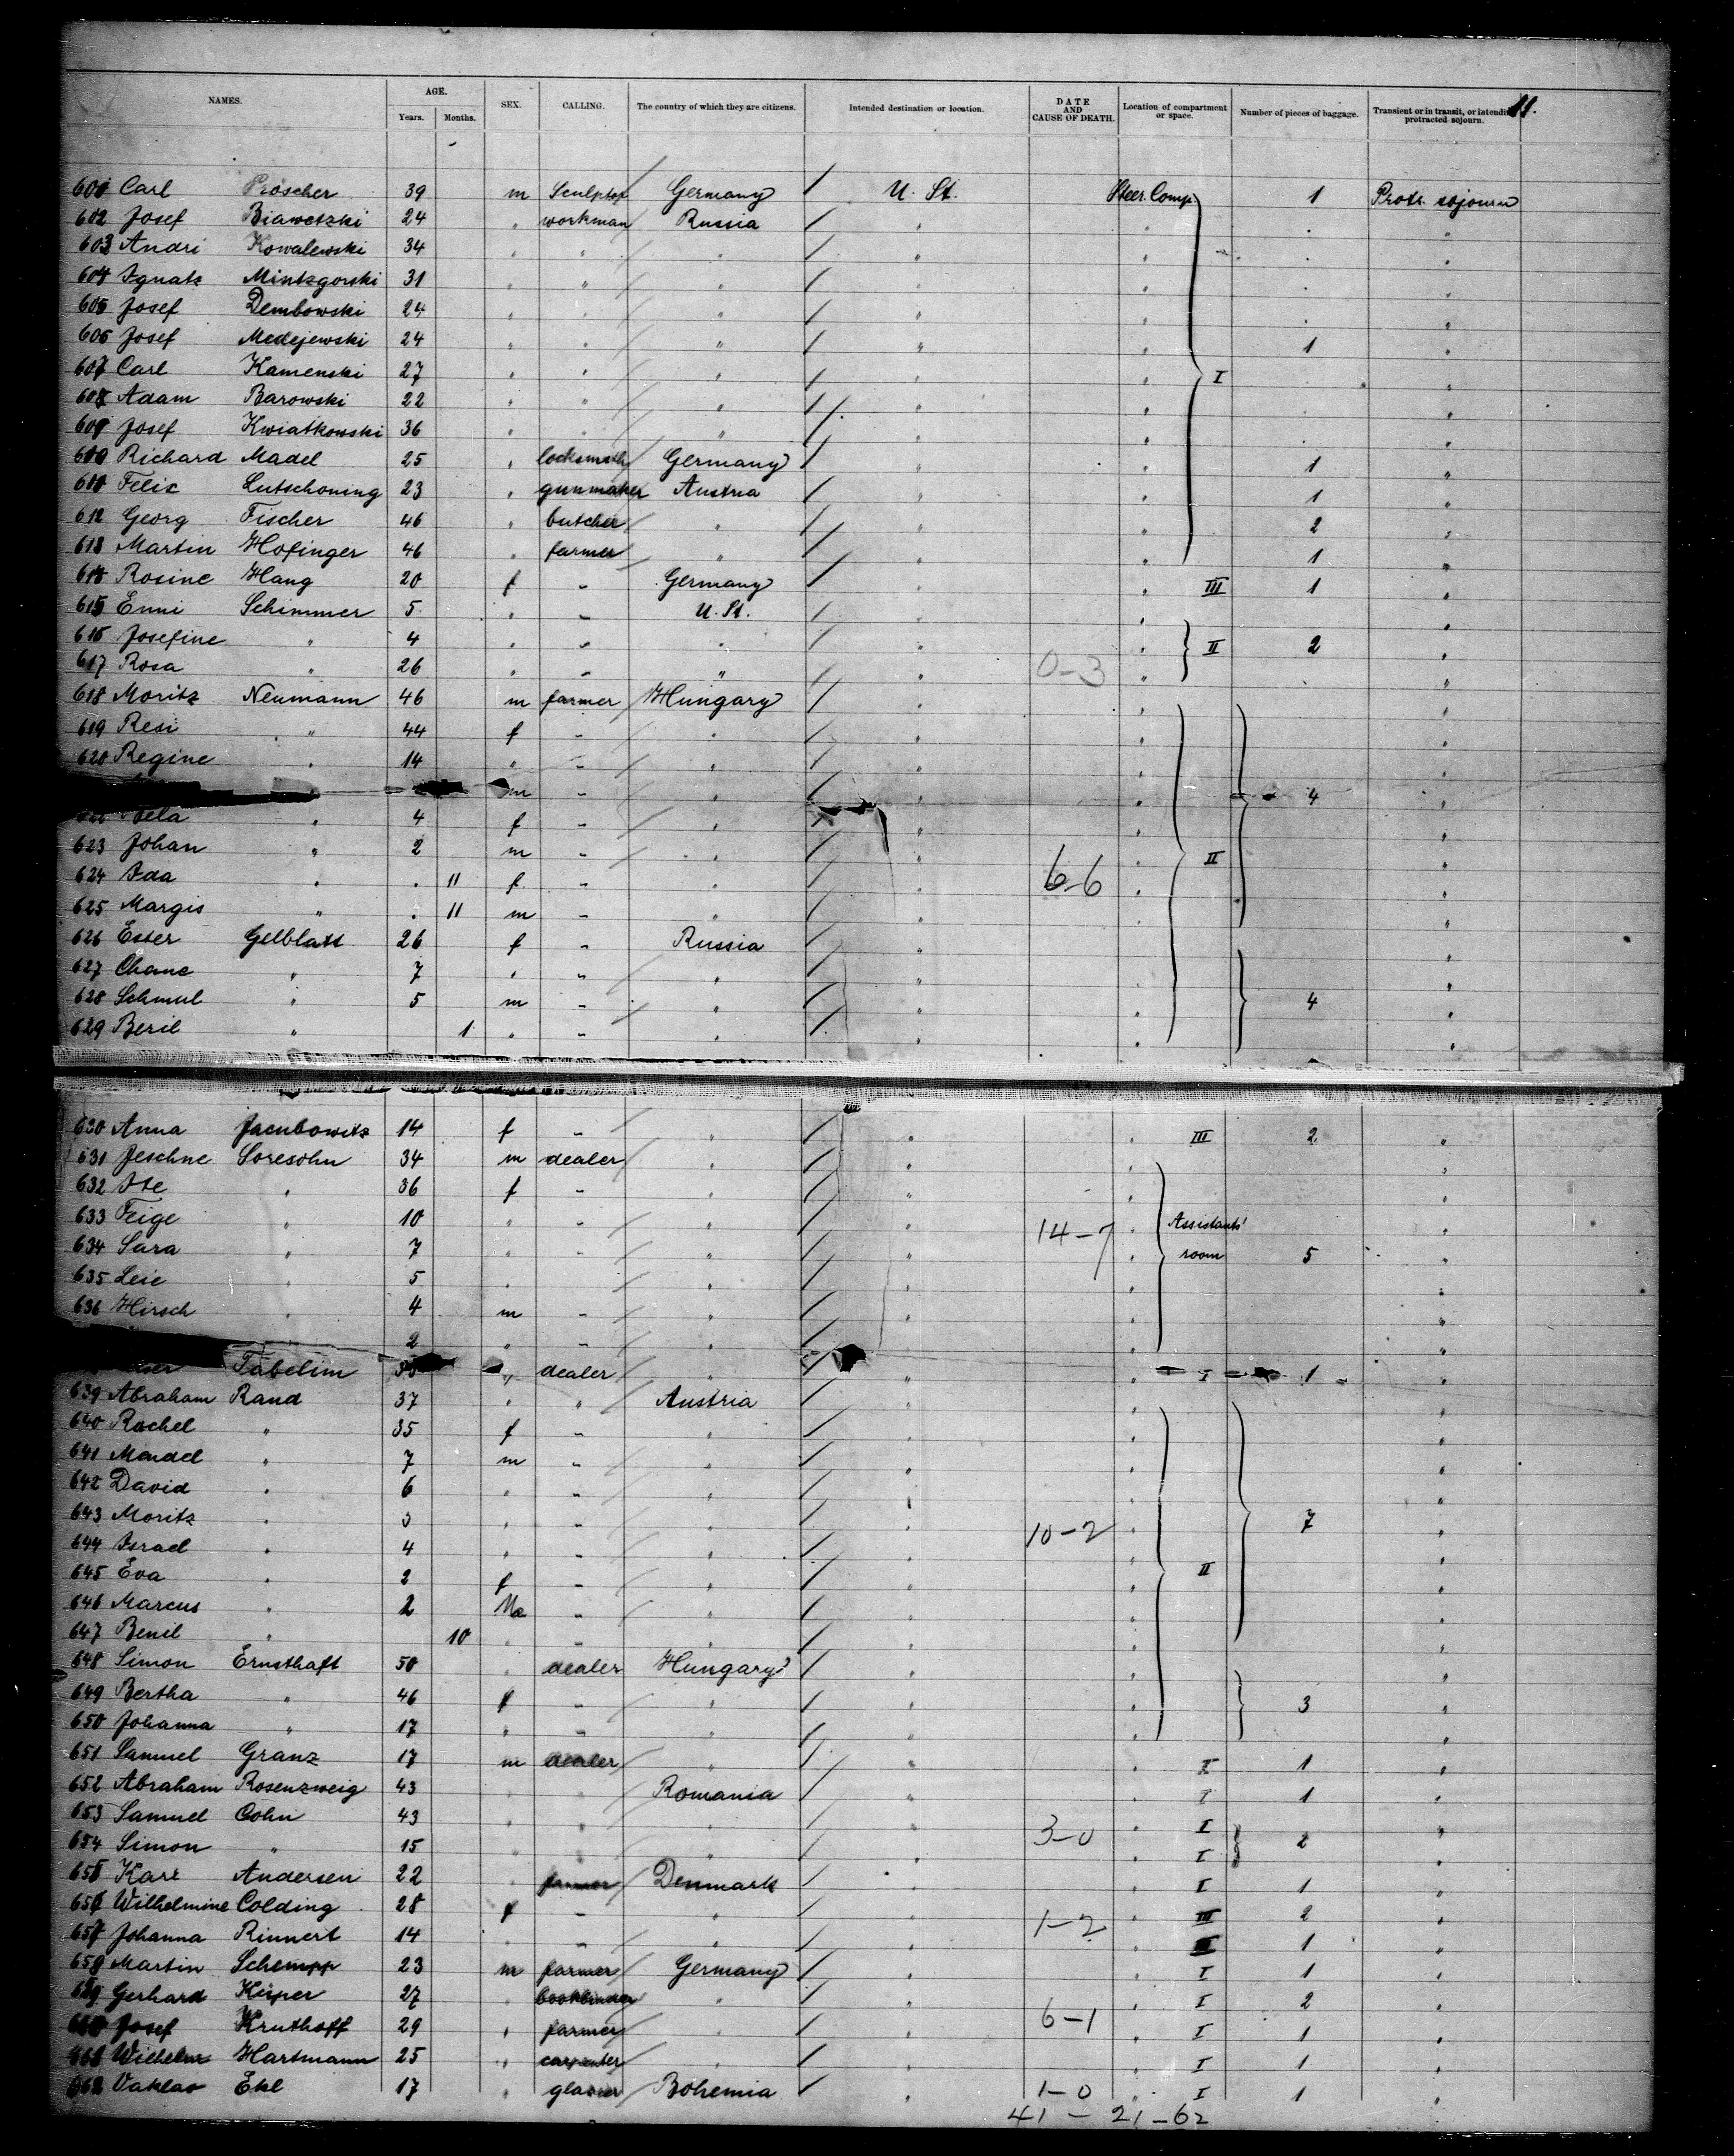 11.
NAMES. AGE. Years. Months. SEX. CALLING. The country of which they are citizens. Intended destination or location. DATE AND CAUSE OF DEATH. Location of compartment or space. Number of pieces of baggage. Transient or in transit, or intending protracted sojourn.
601 Carl Pröscher 39 m Sculptor Germany / U. St. Steer. Comp. 1 Protr. sojourn
602 Josef Biawetzki 24 " workman Russia / " " " "
603 Andri Kowalewski 34 " " " / " " " "
604 Ignatz Mintzgorski 31 " " " / " " " "
605 Josef Dembowski 24 " " " / " " " "
606 Josef Medejewski 24 " " " / " " 1 "
607 Carl Kamenski 27 " " " / " " I "
608 Adam Barowski 22 " " " / " " "
609 Josef Kwiatkowski 36 " " " / " " "
610 Richard Madel 25 " locksmith Germany / " " 1 "
611 Felix Lutschoning 23 " gunmaker Austria / " " 1 "
612 Georg Fischer 46 " butcher " / " " 2 "
613 Martin Hofinger 46 " farmer " / " " 1 "
614 Rosine Hang 20 f - Germany / " " III 1 "
615 Enni Schimmer 5 " - U. St. / " " "
616 Josefine " 4 " - " / " " II 2 "
617 Rosa " 26 " - " / " 0-3 " "
618 Moritz Neumann 46 m farmer Hungary / " " "
619 Resi " 44 f - " / " " "
620 Regine " 14 " - " / " " "
" m - " / " " 4 "
Bela " 4 f - " / " " "
623 Johan " 2 m - " / " " II "
624 Ida " . 11 f - " / " 6-6 " "
625 Margis " . 11 m - " / " " "
626 Ester Gelblatt 26 f - Russia / " "
627 Chane " 7 " - " / " "
628 Schmul " 5 m - " / " " 4 "
629 Beril " 1 " - " / " " "
630 Anna Jacubowitz 14 f - " / " " III 2 "
631 Jeschne Soresohn 34 m dealer " / " " "
632 Ite " 36 f - " / " " "
633 Feige " 10 " - " / " 14-7 " Assistants' "
634 Sara " 7 " - " / " " room 5 "
635 Leie " 5 " " / " " "
636 Hirsch " 4 m - " / " " "
2 " - " / " " "
Tabelim " dealer " / " " I 1 "
639 Abraham Rand 37 " " Austria / " " "
640 Rachel " 35 f - " / " " "
641 Mendel " 7 m - " / " " "
642 David " 6 " - " / " " "
643 Moritz " " - " / " 10-2 " 7 "
644 Israel " 4 " - " / " " "
645 Eva " 2 f - " / " " II "
646 Marcus " 2 M - " / " " "
647 Benil " 10 " - " / " " "
648 Simon Ernsthaft 50 " dealer Hungary / " " "
649 Bertha " 46 f - " / " " 3 "
650 Johanna " 17 " - " / " " "
651 Samuel Granz 17 m dealer " / " " I 1 "
652 Abraham Rosenzweig 43 " " Romania / " " I 1 "
653 Samuel Cohn 43 " " " / " 3-0 " I 2 "
654 Simon " 15 " " " / " " I "
655 Karl Andersen 22 " farmer Denmark / " " I 1 "
656 Wilhelmine Colding 28 f - " / " 1-2 " III 2 "
657 Johanna Rinnert 14 " - " / " " 1 "
658 Martin Schempp 23 m farmer Germany / " " I 1 "
659 Gerhard Küper 27 " bookbinder " / " " I 2 "
660 Josef Kruthoff 29 " farmer " / " 6-1 " I 1 "
661 Wilhelm Hartmann 25 " carpenter " / " " I 1 "
662 Vaklav Ekl 17 " Bohemia / " 1-0 " I 1 "
41 - 21 - 62